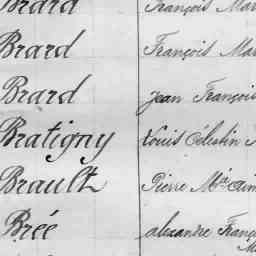 Brard François Mar
Brard François Mar
Brard Jean François
Bratigny Louis Célestin
Brault Pierre Mie Aim
Brée alexandre Franç